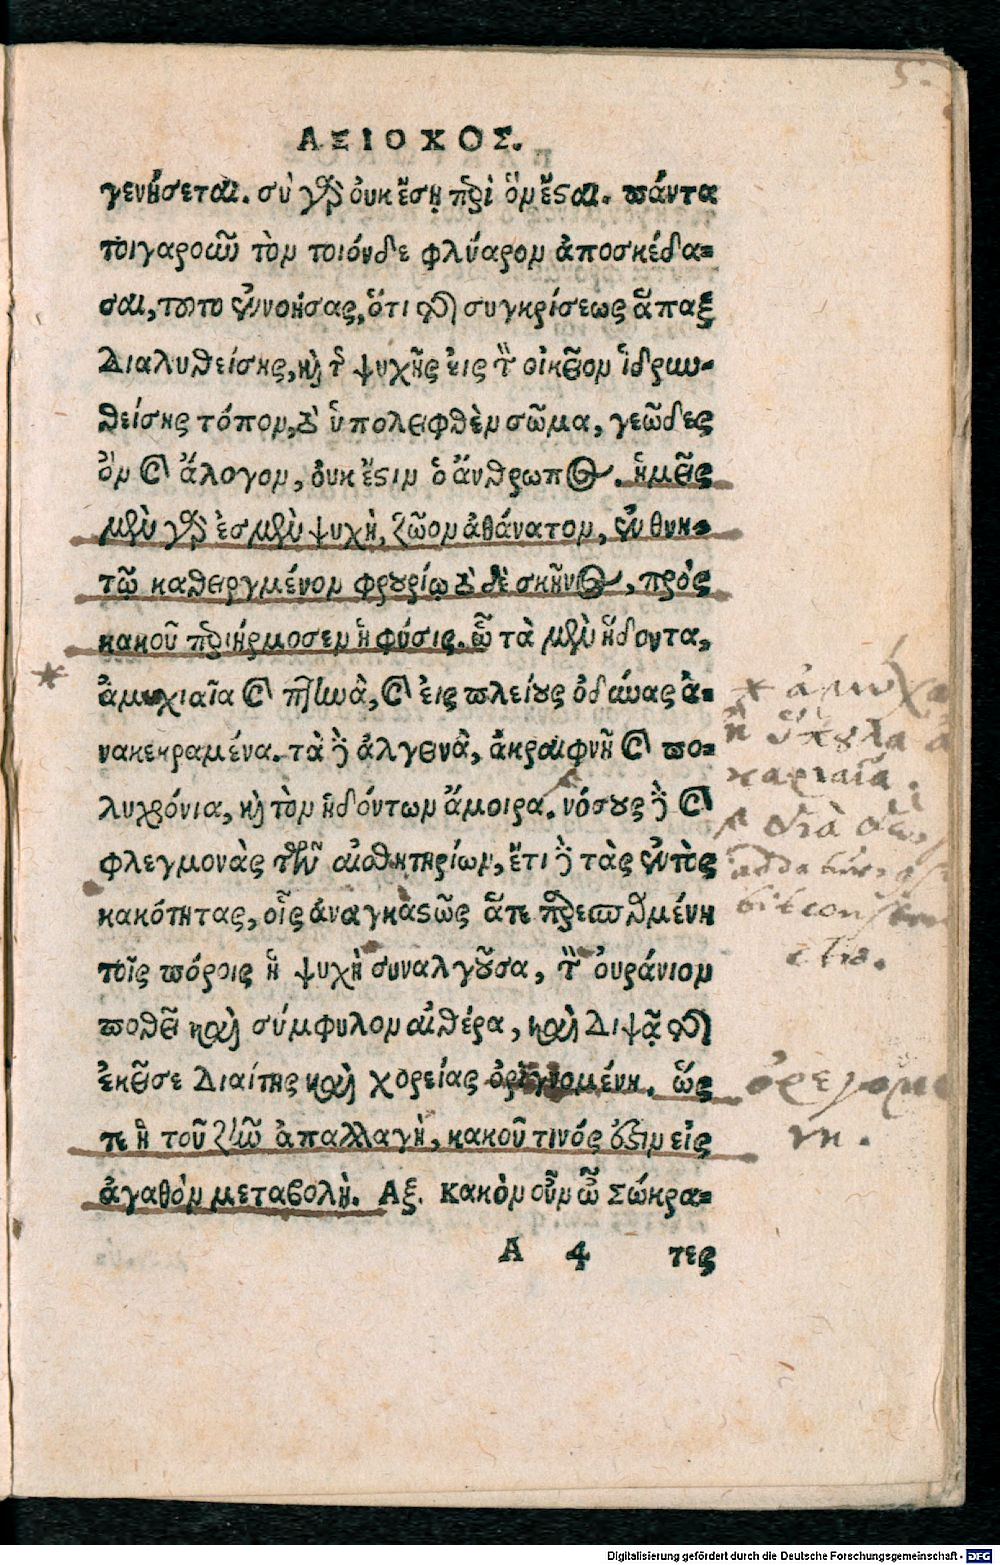 ΑΞΙΟΧΟΣ.
γενήσεται. σὺ γὰρ οὐκ ἔσῃ περὶ ὃν ἔσται. πάντα
τοιγαροῦν τὸν τοιόνδε φλύαρον ἀποσκέδα=
σαι, τοῦτο ἐννοήσας, ὅτι τῆς συγκρίσεως ἅπαξ
διαλυθείσης, καὶ τῆς ψυχῆς εἰς τὸν οἰκεῖον ἱδρυν-
θείσης τόπον, τὸ ὑπολειφθὲν σῶμα, γεῶδες
ὂν καὶ ἄλογον, οὐκ ἔστιν ὁ ἄνθρωπος. ἡμεῖς
μὲν γὰρ ἐσμὲν ψυχὴ, ζῶον ἀθάνατον, ἐν θνη=
τῷ καθειργμένον φρουρίῳ τὸ δὲ σκῆνος, πρὸς
κακοῦ περιήρμοσεν ἡ φύσις. ᾧ τὰ μὲν ἥδοντα,
ἀμυχιαῖα καὶ πτηνὰ, καὶ εἰς πλείους ὀδύνας ἀ=
νακεκραμένα. τὰ δὲ ἀλγεινὰ, ἀκραιφνῆ καὶ πο=
λυχρόνια, καὶ τὸν ἡδόντων ἄμοιρα. νόσους δὲ καὶ
φλεγμονὰς τῶν αἰσθητηρίων, ἔτι δὲ τὰς ἐντὸς
κακότητας, οἷς ἀναγκαστῶς ἅτε παρεσπαρμένη
τοῖς πόροις ἡ ψυχὴ συναλγοῦσα, τὸν οὐράνιον
ποθεῖ καὶ σύμφυλον αἰθέρα, καὶ διψᾷ τῆς
ἐκεῖσε διαίτης καὶ χορείας ὀριγνομένη. ὥς
τε ἡ τοῦ ζῆν ἀπαλλαγὴ, κακοῦ τινός ἐστιν εἰς
ἀγαθὸν μεταβολή. Αξ. Κακὸν οὖν ὦ Σώκρα=
Α 4 τες
ὀρεγομέ
νη.
Digitalisierung gefördert durch die Deutsche Forschungsgemeinschaft - DFG